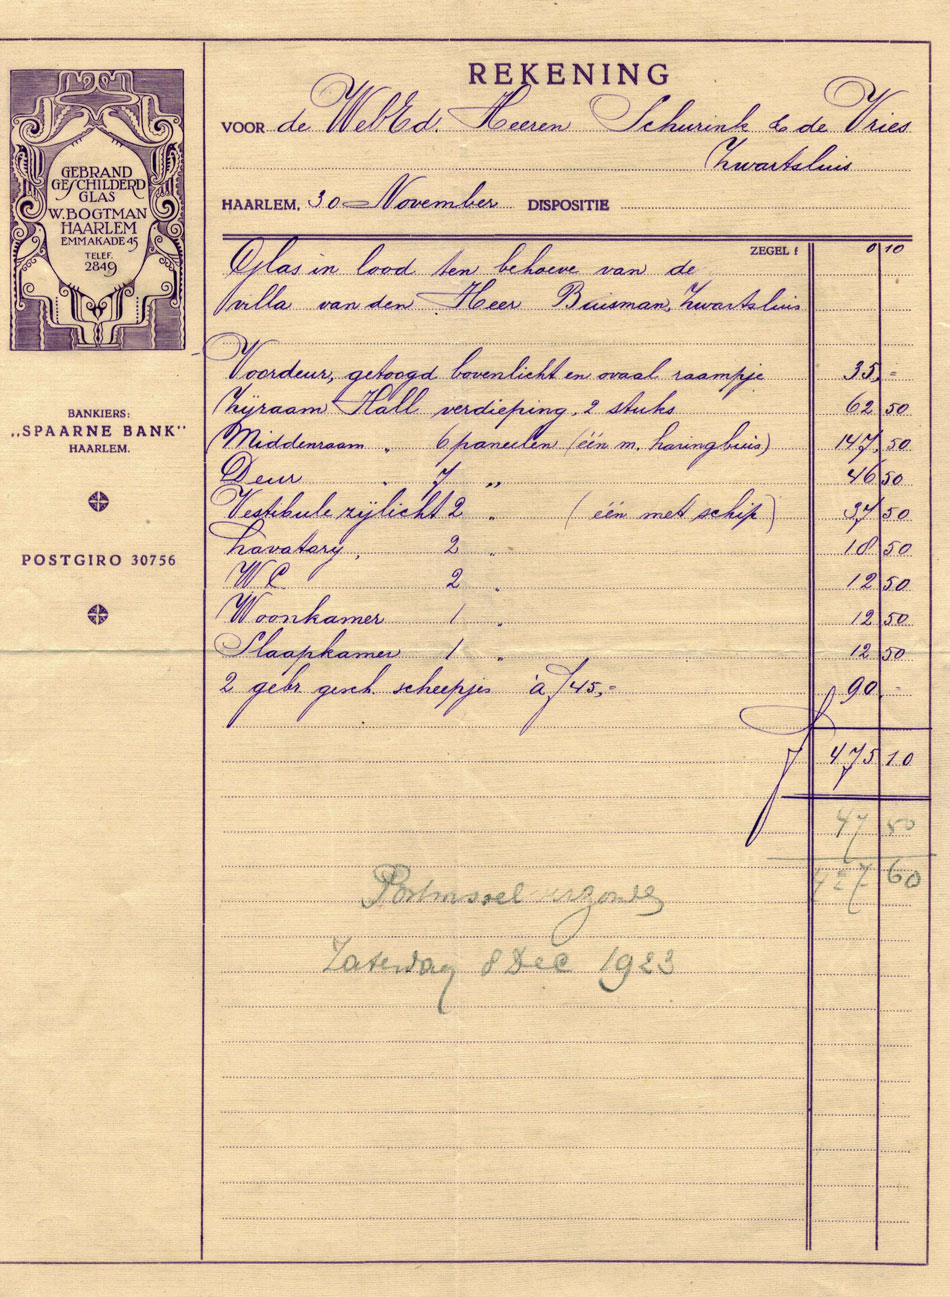 REKENING
VOOR de WelEd. Heeren Schurink & de Vries
Zwartsluis
HAARLEM, 30 November DISPOSITIE
GEBRAND
GESCHILDERD
GLAS
W. BOGTMAN
HAARLEM
EMMAKADE 45
TELEF.
2849
BANKIERS:
„SPAARNE BANK"
HAARLEM.
POSTGIRO 30756
ZEGEL f 0 10
Glas in lood ten behoeve van de
villa van den Heer Buisman, Zwartsluis
Voordeur, getoogd bovenlicht en ovaal raampje 35,-
Zijraam Hall verdieping, 2 stuks 62 50
Middenraam „ 6 paneelen (één m. haringbuis) 147,50
Deur „ 7 „ 46 50
Vestibule zijlicht 2 „ (één met schip) 37 50
Lavatory, 2 „ 18 50
WC 2 „ 12 50
Woonkamer 1 „ 12 50
Slaapkamer 1 „ 12 50
2 gebr. gesch. scheepjes à f 45,- 90,-
f 475 10
47 50
427 60
Postwissel verzonden
Zaterdag 8 Dec 1923